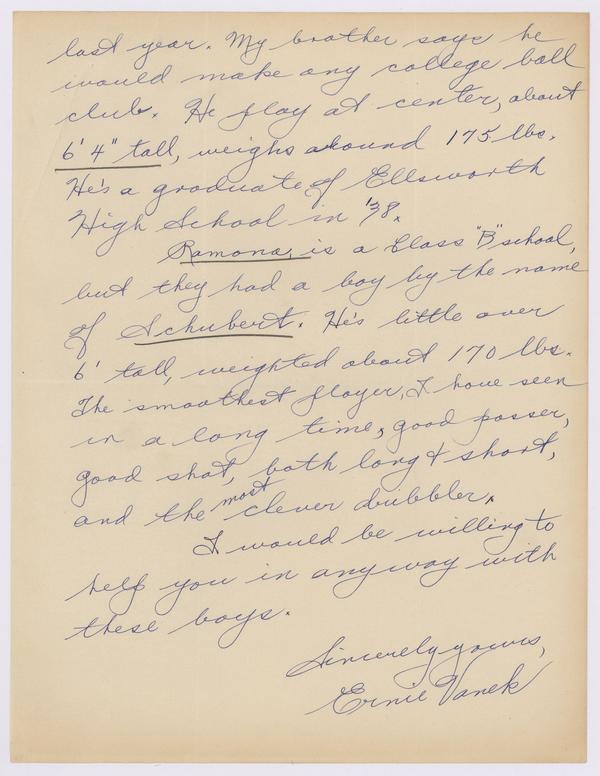 last year. My brother says he
would make any college ball
club. He play at center, about
6' 4" tall, weighs around 175 lbs.
He's a graduate of Ellsworth
High School in '38.
Ramona, is a Class "B" school,
but they had a boy by the name
of Schubert. He's little over
6' tall, weighted about 170 lbs.
The smoothest player, I have seen
in a long time, good passer,
good shot, both long & short,
and the most clever dubbler.
I would be willing to
help you in anyway with
these boys.
Sincerely yours,
Ernie Vanek